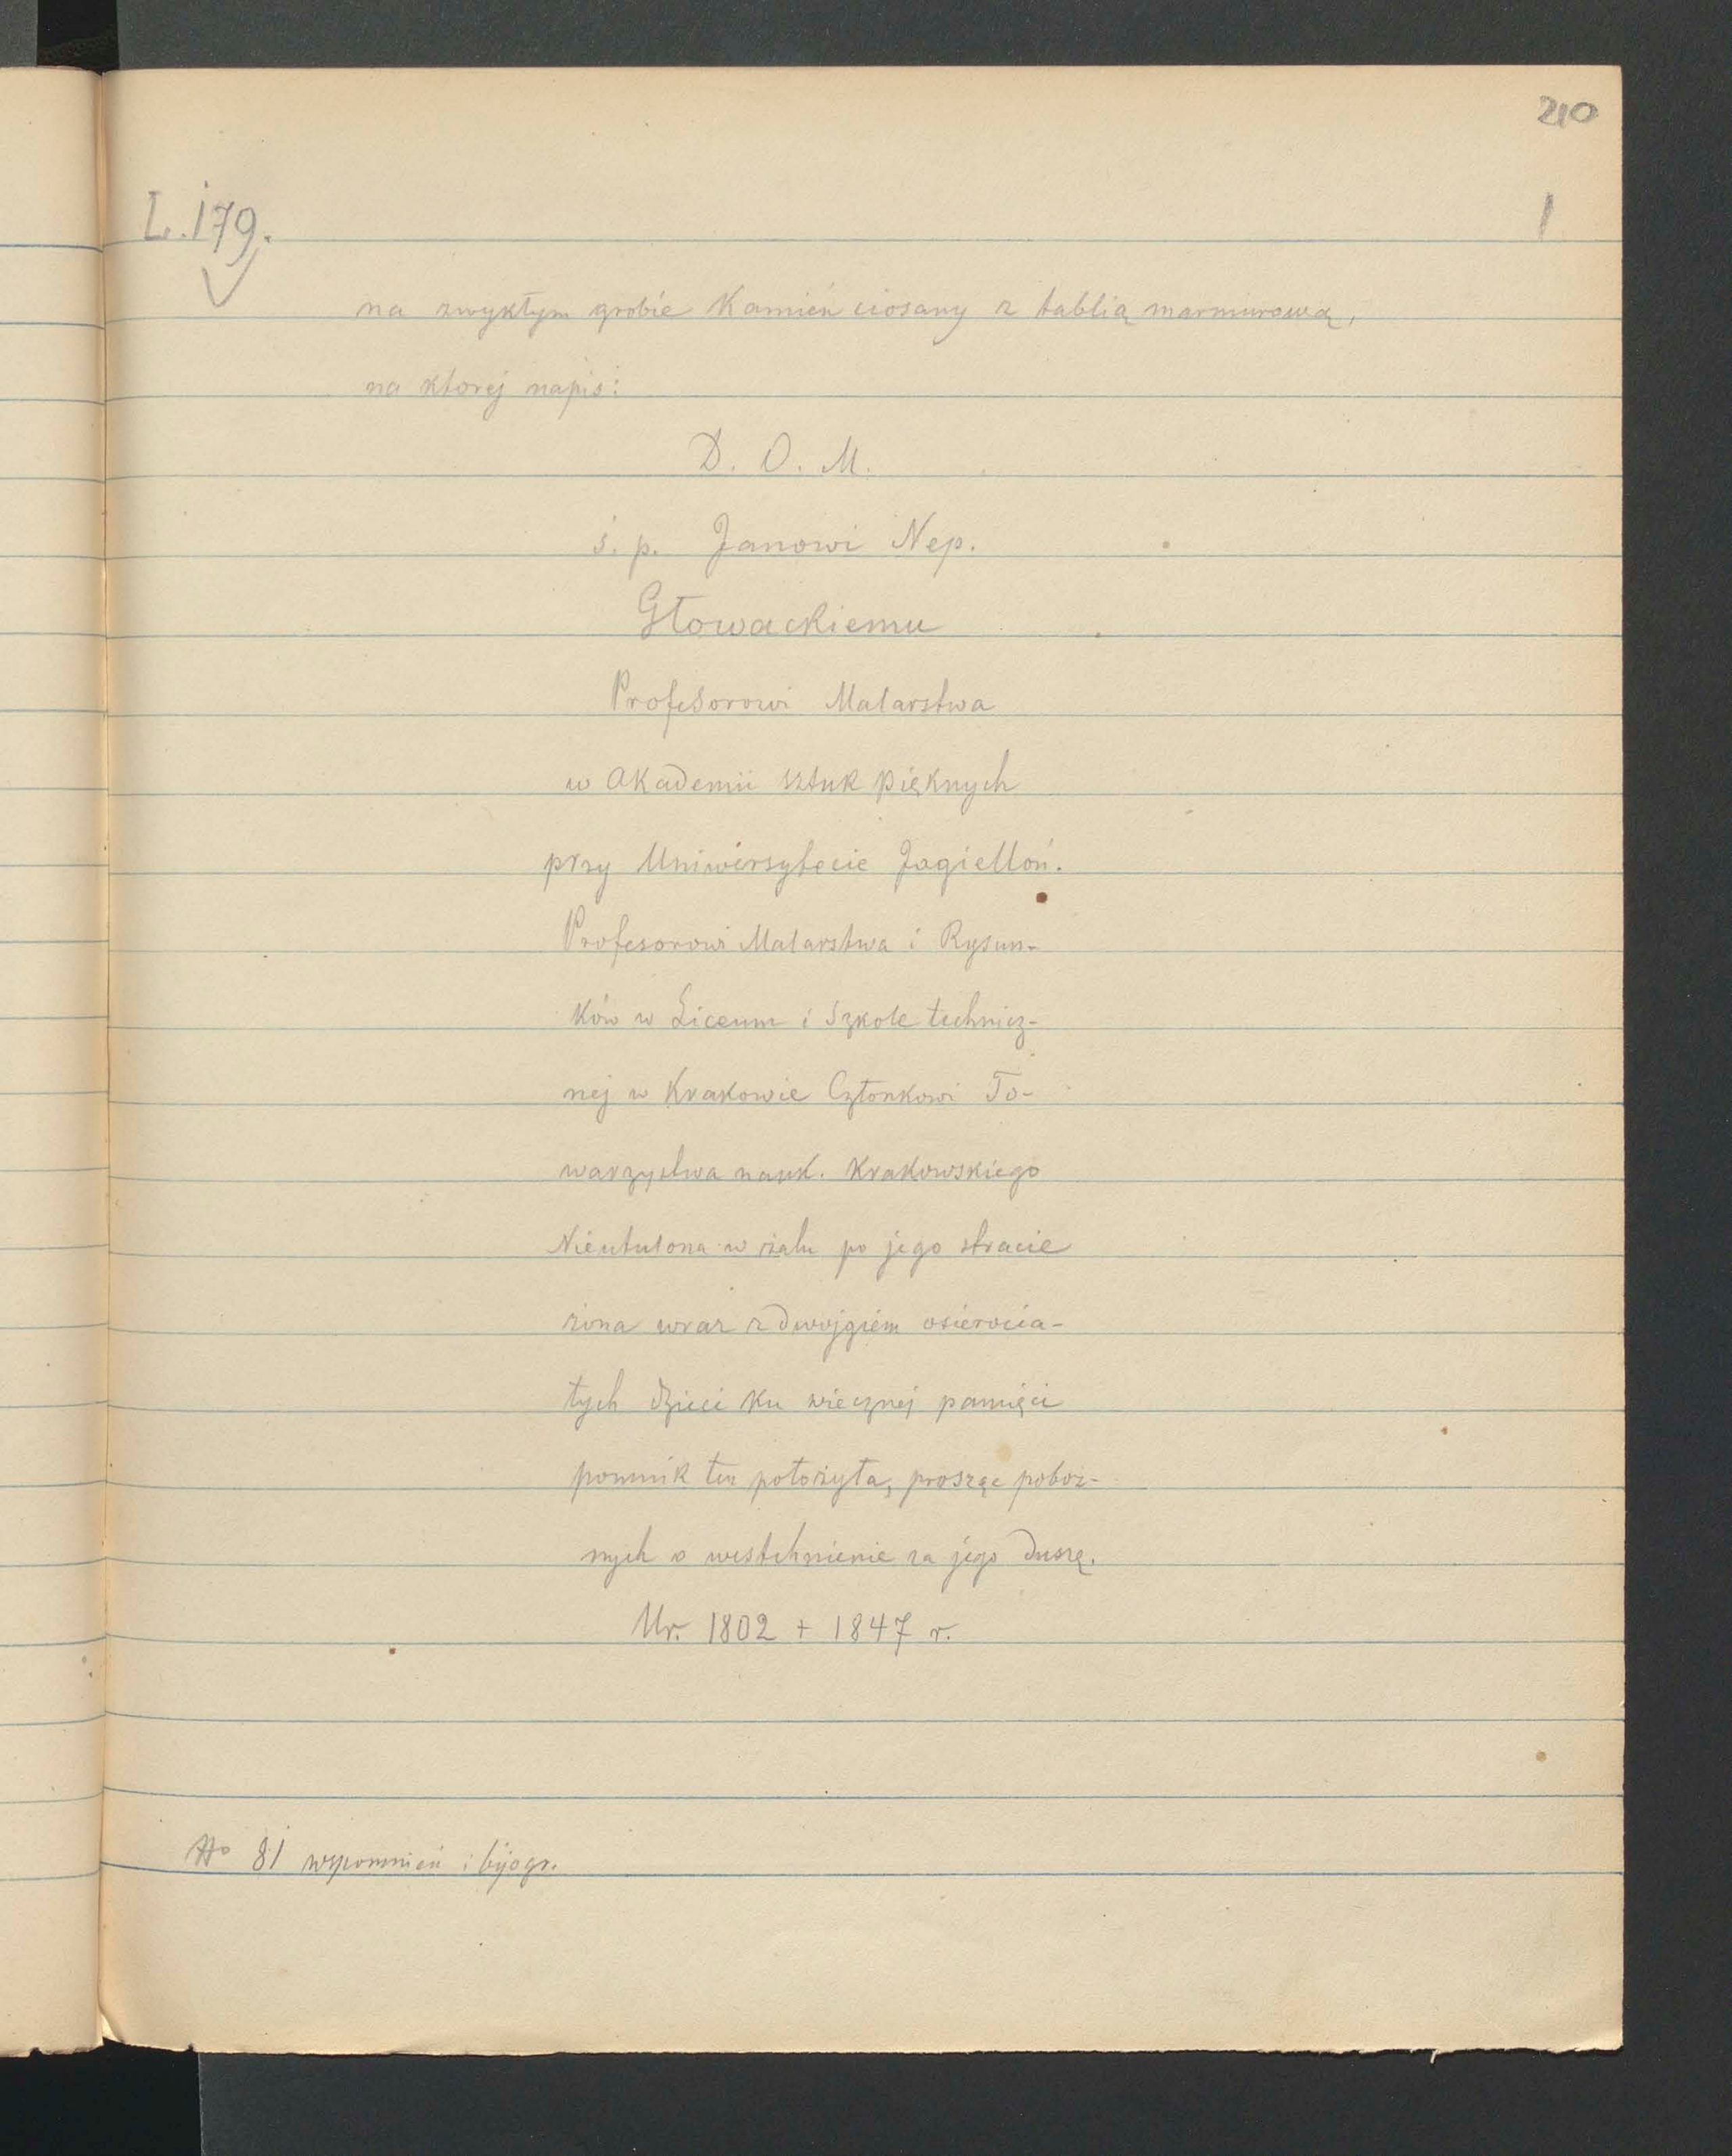 210
L. 179.
1
na zwykłym grobie Kamień ciosany z tablią marmurową,
na ktorej napis:
D. O. M.
ś. p. Janowi Nep.
Głowackiemu
Profesorowi Malarstwa
w Akademii sztuk pięknych
przy Uniwersytecie Jagielloń.
Profesorowi Malarstwa i Rysun-
ków w Liceum i Szkole technicz-
nej w Krakowie Członkowi To-
warzystwa nauk. Krakowskiego
Nieutulona w żalu po jego stracie
żona wraz z dwojgiem osierocia-
łych dzieci ku wiecznej pamięci
pomnik ten położyła, prosząc poboż-
nych o westchnienie za jego duszę.
Ur. 1802 + 1847 r.
81 wspomnień i bijogr.